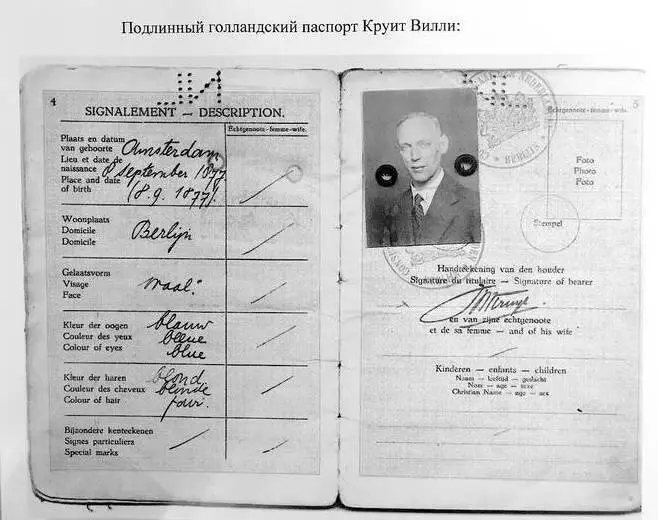 Подлинный голландский паспорт Круит Вилли:
4
SIGNALEMENT — DESCRIPTION.
Echtgenoote - femme - wife.
Plaats en datum
van geboorte
Lieu et date de
naissance
Place and date
of birth
Amsterdam
8 September 1877
(8.9.1877).
Woonplaats
Domicile
Domicile
Berlijn
Gelaatsvorm
Visage
Face
ovaal.
Kleur der oogen
Couleur des yeux
Colour of eyes
blauw
bleue
blue
Kleur der haren
Couleur des cheveux
Colour of hair
blond
blonde
fair.
Bijzondere kenteekenen
Signes particuliers
Special marks
5
Echtgenoote - femme - wife.
Foto
Photo
Foto
Stempel
BERLIJN
Handteekening van den houder
Signature du titulaire — Signature of bearer
en van zijne echtgenoote
et de sa femme — and of his wife
Kinderen — enfants — children
Naam — leeftijd — geslacht
Nom — age — sexe
Christian Name — age — sex